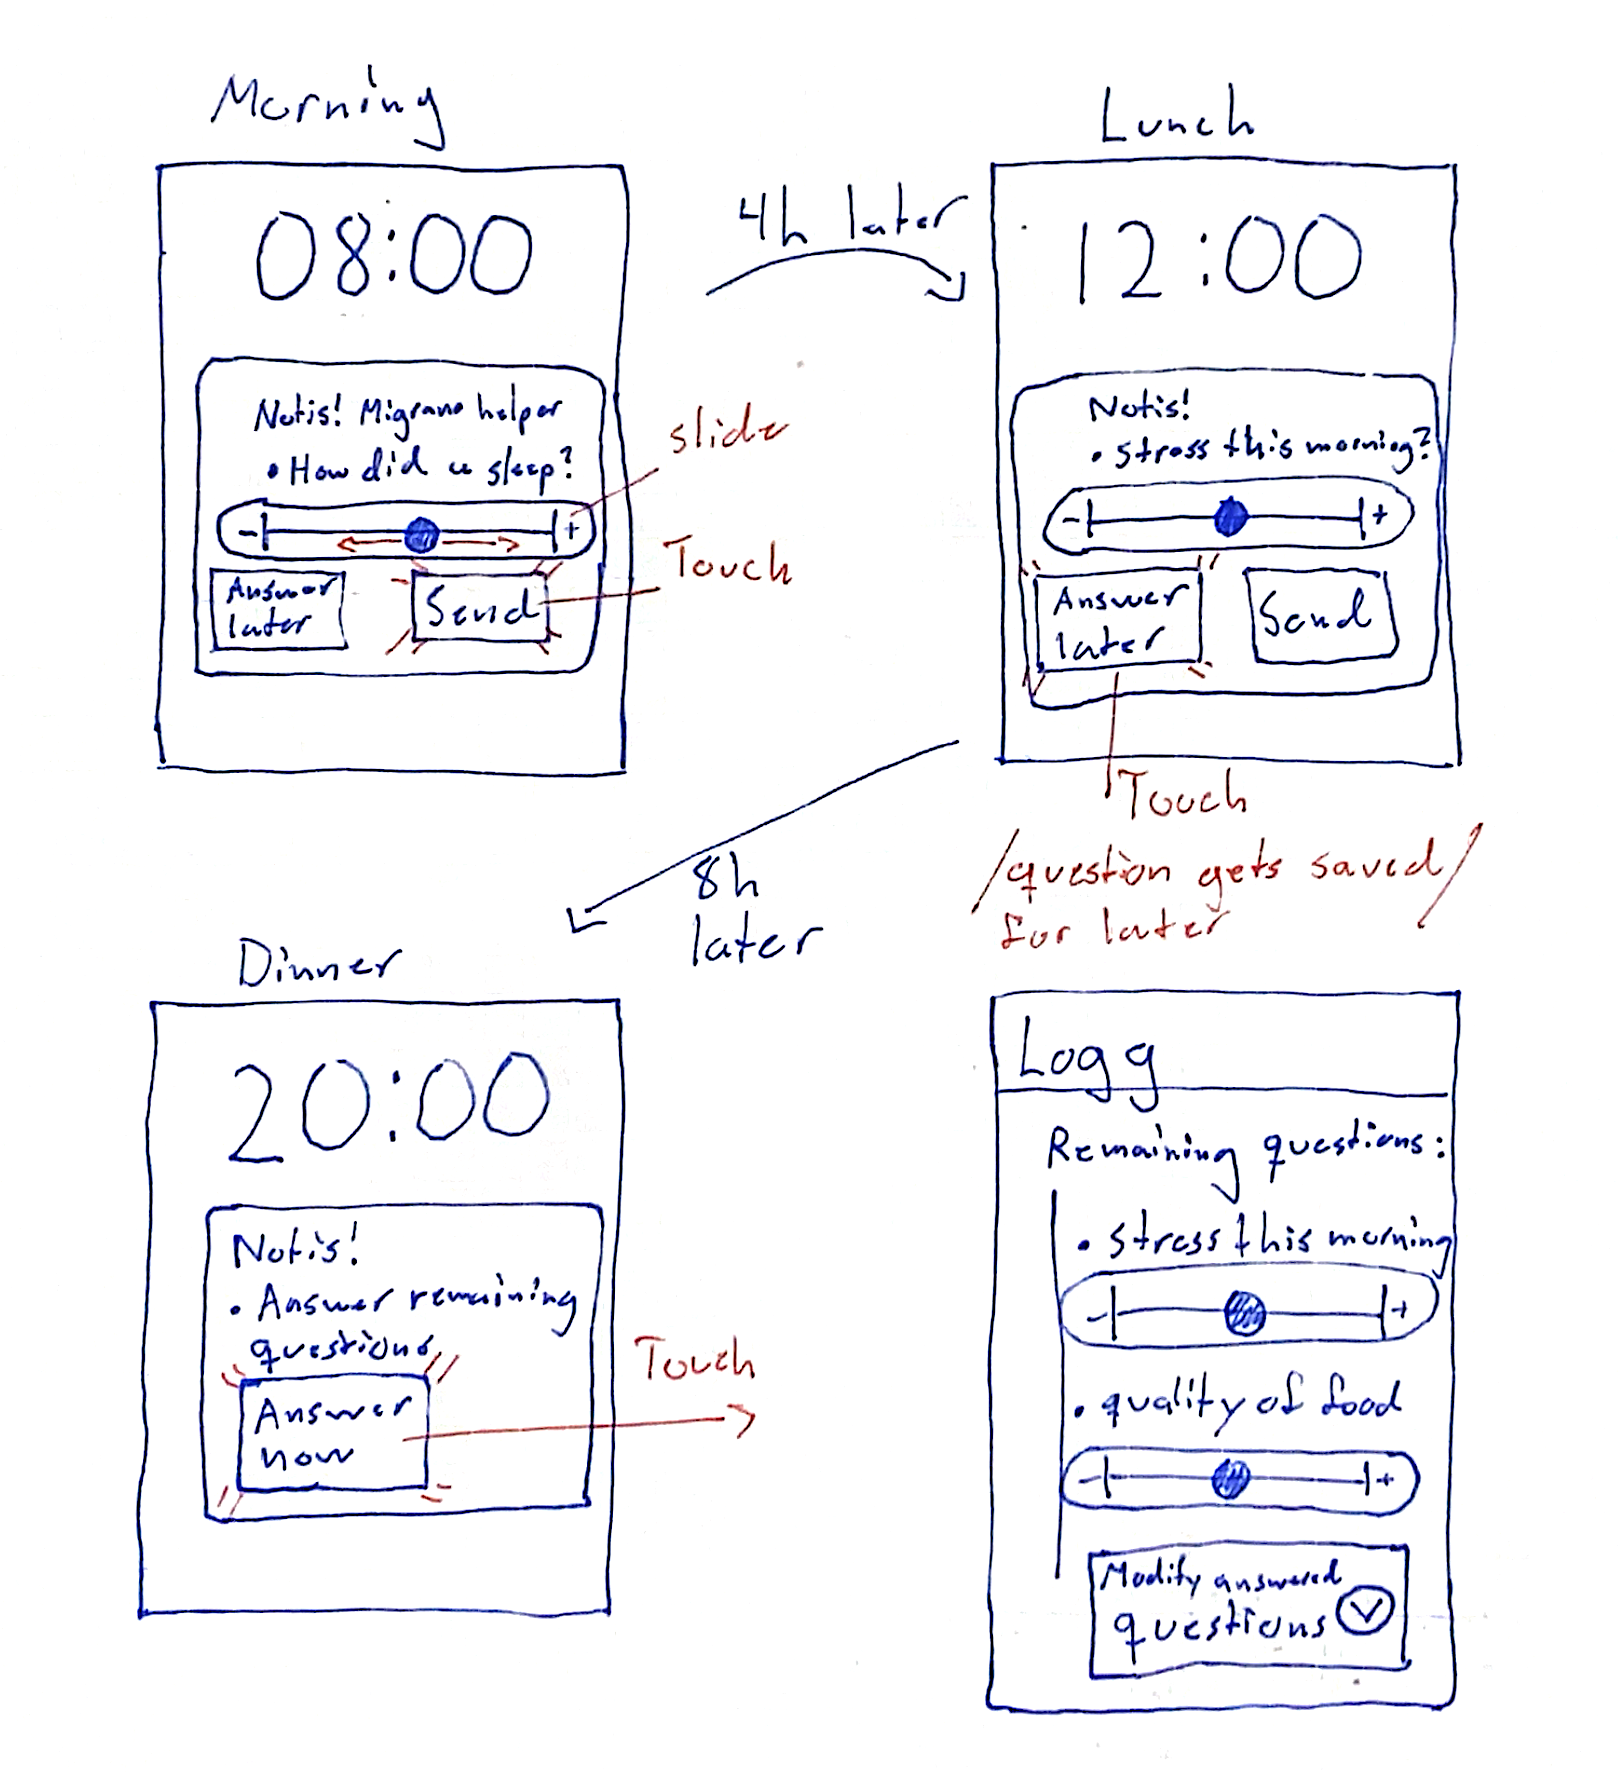 Morning
08:00
Notis! Migrane helper
• How did u sleep?
- +
Answer
later
Send
slide
Touch
4h later
Lunch
12:00
Notis!
• stress this morning?
- +
Answer
later
Send
Touch
/question gets saved/
for later
8h
later
Dinner
20:00
Notis!
• Answer remaining
questions
Answer
now
Touch
Logg
Remaining questions:
• stress this morning
- +
• quality of food
- +
Modify answered
questions